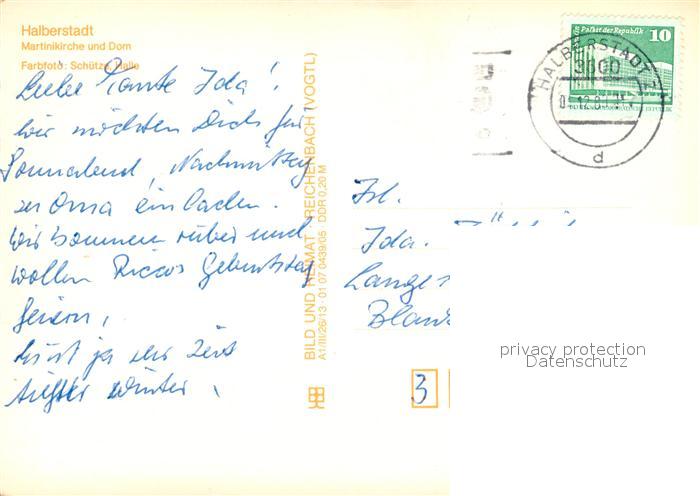 Halberstadt
Martinikirche und Dom
Farbfoto: Schütze, Halle
Liebe Tante Ida!
wir möchten Dich für
Sonnabend Nachmittag
zu Oma einladen.
Wir kommen rüber und
wollen Riccos Geburtstag
feiern,
ist ja der Zeit
tiefster Winter,
BILD UND HEIMAT REICHENBACH (VOGTL)
A1/III/26/13 01 07 0439/05 DDR 0,20 M
Palast der Republik
10
HALBERSTADT
3600
d
Frl.
Ida.
Lange
Blank
3
privacy protection
Datenschutz